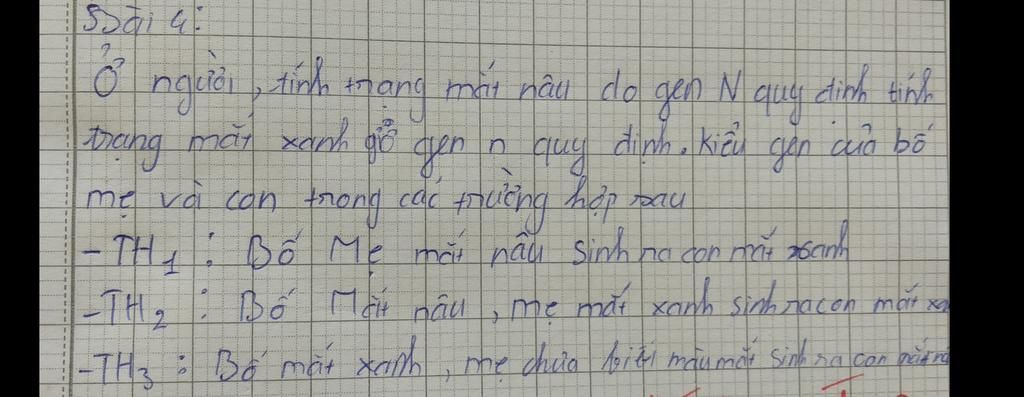 Bài 4:
Ở người, tính trạng mắt nâu do gen N quy định tính
trạng mắt xanh gen n quy định. Kiểu gen của bố
mẹ và con trong các trường hợp sau
- TH1 : Bố Mẹ mắt nâu sinh ra con mắt xanh
- TH2 : Bố Mắt nâu, mẹ mắt xanh sinh ra con mắt xa
- TH3 : Bố mắt xanh, mẹ chưa biết màu mắt sinh ra con mắt nâ